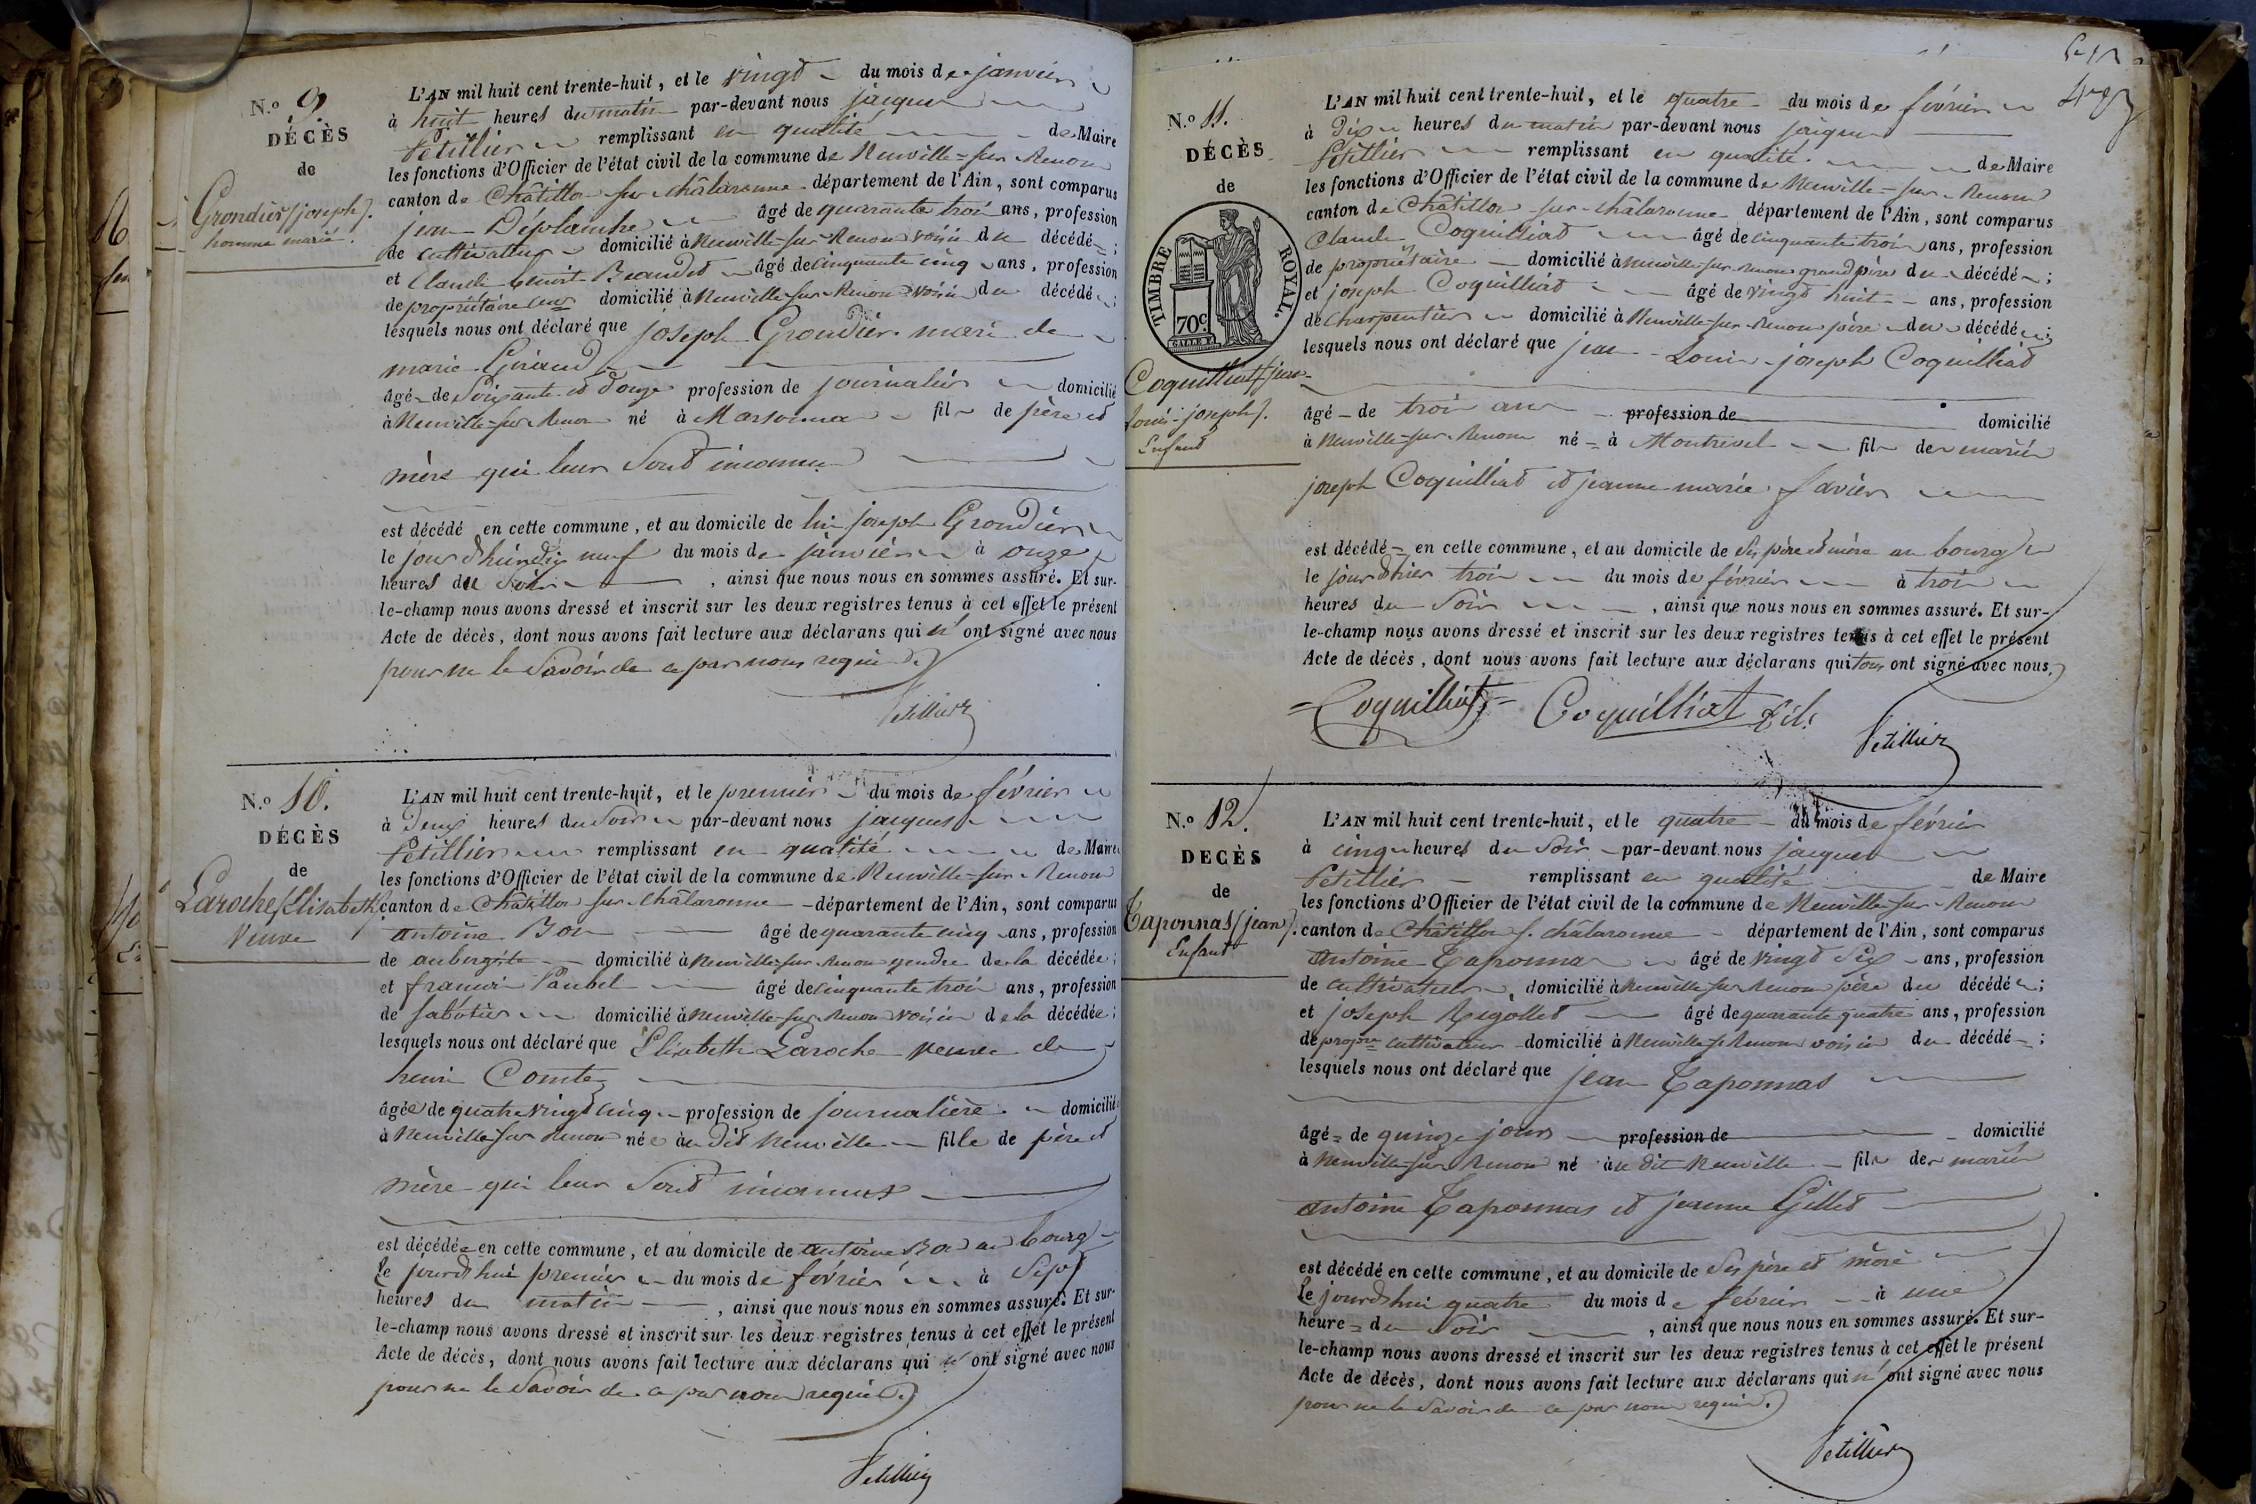 N.o 9.
DÉCÈS
de
Grondier (joseph).
homme marié.
L'AN mil huit cent trente-huit, et le vingt du mois de janvier
à huit heures du matin par-devant nous jacques
Petillier remplissant en qualité de Maire
les fonctions d'Officier de l'état civil de la commune de Neuville-sur-Renom
canton de Châtillon sur châlaronne département de l'Ain, sont comparus
jean Déplanche âgé de quarante trois ans, profession
de cultivateur domicilié à Neuville-sur-Renom voisin du décédé ;
et Claude benoit Beaudet âgé de cinquante cinq ans, profession
de propriétaire domicilié à Neuville-sur-Renom voisin du décédé ;
lesquels nous ont déclaré que joseph Grondier mari de
marie Giraud
âgé de soixante et douze profession de journalier domicilié
à Neuville-sur-Renom né à Marsonnas fils de père et
mère qui leur sont inconnus
est décédé en cette commune, et au domicile de lui joseph Grondier
le jour d'hier dix neuf du mois de janvier à onze
heures du soir , ainsi que nous nous en sommes assuré. Et sur-
le-champ nous avons dressé et inscrit sur les deux registres tenus à cet effet le présent
Acte de décès, dont nous avons fait lecture aux déclarans qui n'ont signé avec nous
pour ne le savoir de ce par nous requis.
Petillier
N.o 10.
DÉCÈS
de
Laroche (Elisabeth)
Veuve
L'AN mil huit cent trente-huit, et le premier du mois de février
à deux heures du soir par-devant nous jacques
Petillier remplissant en qualité de Maire
les fonctions d'Officier de l'état civil de la commune de Neuville-sur-Renom
canton de Châtillon sur châlaronne département de l'Ain, sont comparus
antoine Bon âgé de quarante cinq ans, profession
de aubergiste domicilié à Neuville-sur-Renom gendre de la décédée ;
et francois Paubel âgé de cinquante trois ans, profession
de sabotier domicilié à Neuville-sur-Renom voisin de la décédée ;
lesquels nous ont déclaré que Elisabeth Laroche veuve de
henri Comte
âgée de quatre vingt cinq profession de journalière domicilié
à Neuville sur Renom née au dit Neuville fille de père et
mère qui leur sont inconnus
est décédée en cette commune, et au domicile de antoine Bon au bourg
le jourd'hui premier du mois de février à sept
heures du matin , ainsi que nous nous en sommes assuré. Et sur-
le-champ nous avons dressé et inscrit sur les deux registres tenus à cet effet le présent
Acte de décès, dont nous avons fait lecture aux déclarans qui n'ont signé avec nous
pour ne le savoir de ce par nous requis.
Petillier
N.o 11.
DÉCÈS
de
TIMBRE ROYAL.
70c.
Coquilliat (jean-
Louis-joseph).
Enfant
L'AN mil huit cent trente-huit, et le quatre du mois de février
à dix heures du matin par-devant nous jacques
Petillier remplissant en qualité de Maire
les fonctions d'Officier de l'état civil de la commune de Neuville-sur-Renom
canton de Châtillon sur-châlaronne département de l'Ain, sont comparus
Claude Coquilliat âgé de cinquante trois ans, profession
de propriétaire domicilié à Neuville-sur-Renom grand père du décédé ;
et joseph Coquilliat âgé de vingt huit ans, profession
de charpentier domicilié à Neuville-sur-Renom père du décédé ;
lesquels nous ont déclaré que jean Louis joseph Coquilliat
âgé de trois ans profession de domicilié
à Neuville-sur-Renom né à Montrevel fils des mariés
joseph Coquilliat et jeanne marie favier
est décédé en cette commune, et au domicile de ses père et mère au bourg
le jour d'hier trois du mois de février à trois
heures du soir , ainsi que nous nous en sommes assuré. Et sur-
le-champ nous avons dressé et inscrit sur les deux registres tenus à cet effet le présent
Acte de décès, dont nous avons fait lecture aux déclarans qui tous ont signé avec nous.
Coquilliat Coquilliat fils
Petillier
N.o 12.
DECÈS
de
Taponnas (jean).
Enfant
L'AN mil huit cent trente-huit, et le quatre du mois de février
à cinq heures du soir par-devant nous jacques
Petillier remplissant en qualité de Maire
les fonctions d'Officier de l'état civil de la commune de Neuville-sur-Renom
canton de Châtillon s. châlaronne département de l'Ain, sont comparus
Antoine Taponnas âgé de vingt six ans, profession
de cultivateur domicilié à Neuville sur Renom père du décédé ;
et joseph Rigollet âgé de quarante quatre ans, profession
de propre cultivateur domicilié à Neuville s. Renom voisin du décédé ;
lesquels nous ont déclaré que jean Taponnas
âgé de quinze jours profession de domicilié
à Neuville-sur Renom né au dit Neuville fils des mariés
antoine Taponnas et jeanne Gillet
est décédé en cette commune, et au domicile de ses père et mère
le jourd'hui quatre du mois de février à une
heure du soir , ainsi que nous nous en sommes assuré. Et sur-
le-champ nous avons dressé et inscrit sur les deux registres tenus à cet effet le présent
Acte de décès, dont nous avons fait lecture aux déclarans qui n'ont signé avec nous
pour ne le savoir de ce par nous requis.
Petillier